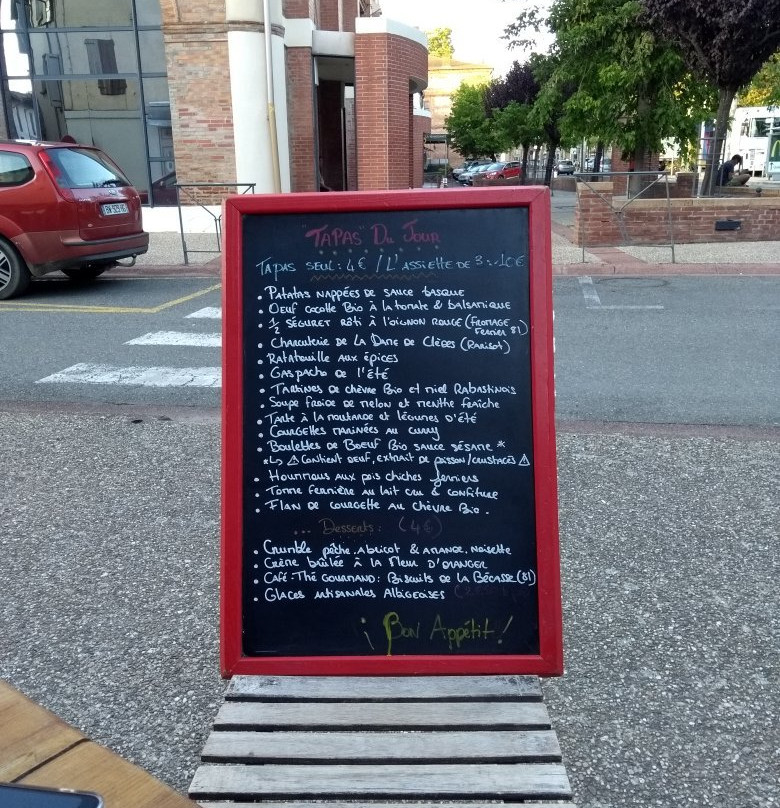 "TAPAS" Du Jour
TAPAS SEUL: 4€ / L'ASSIETTE DE 3: 10€
• Patatas nappées de sauce basque
• Oeuf cocotte Bio à la tomate & balsamique
• 1/2 SÉGURET RÔTI à l'oignon rouge (FROMAGE Fermier 81)
• Charcuterie de la Dame de Clèges (Parisot)
• Ratatouille aux épices
• Gaspacho de l'été
• Tartines de chèvre Bio et miel Rabastinois
• Soupe froide de melon et menthe fraîche
• Tarte à la moutarde et légumes d'été
• Courgettes marinées au curry
• Boulettes de Boeuf Bio sauce sésame *
*↳ ⚠ Contient oeuf, extrait de poisson/crustacés ⚠
• Hoummous aux pois chiches fermiers
• Tomme fermière au lait cru & confiture
• Flan de courgette au chèvre Bio.
... Desserts: (4€)
• Crumble pêche.abricot & amande.noisette
• Crème brûlée à la fleur d'oranger
• Café-Thé gourmand: Biscuits de la Bécasse (81)
• Glaces artisanales Albigeoises
¡ Bon Appétit!